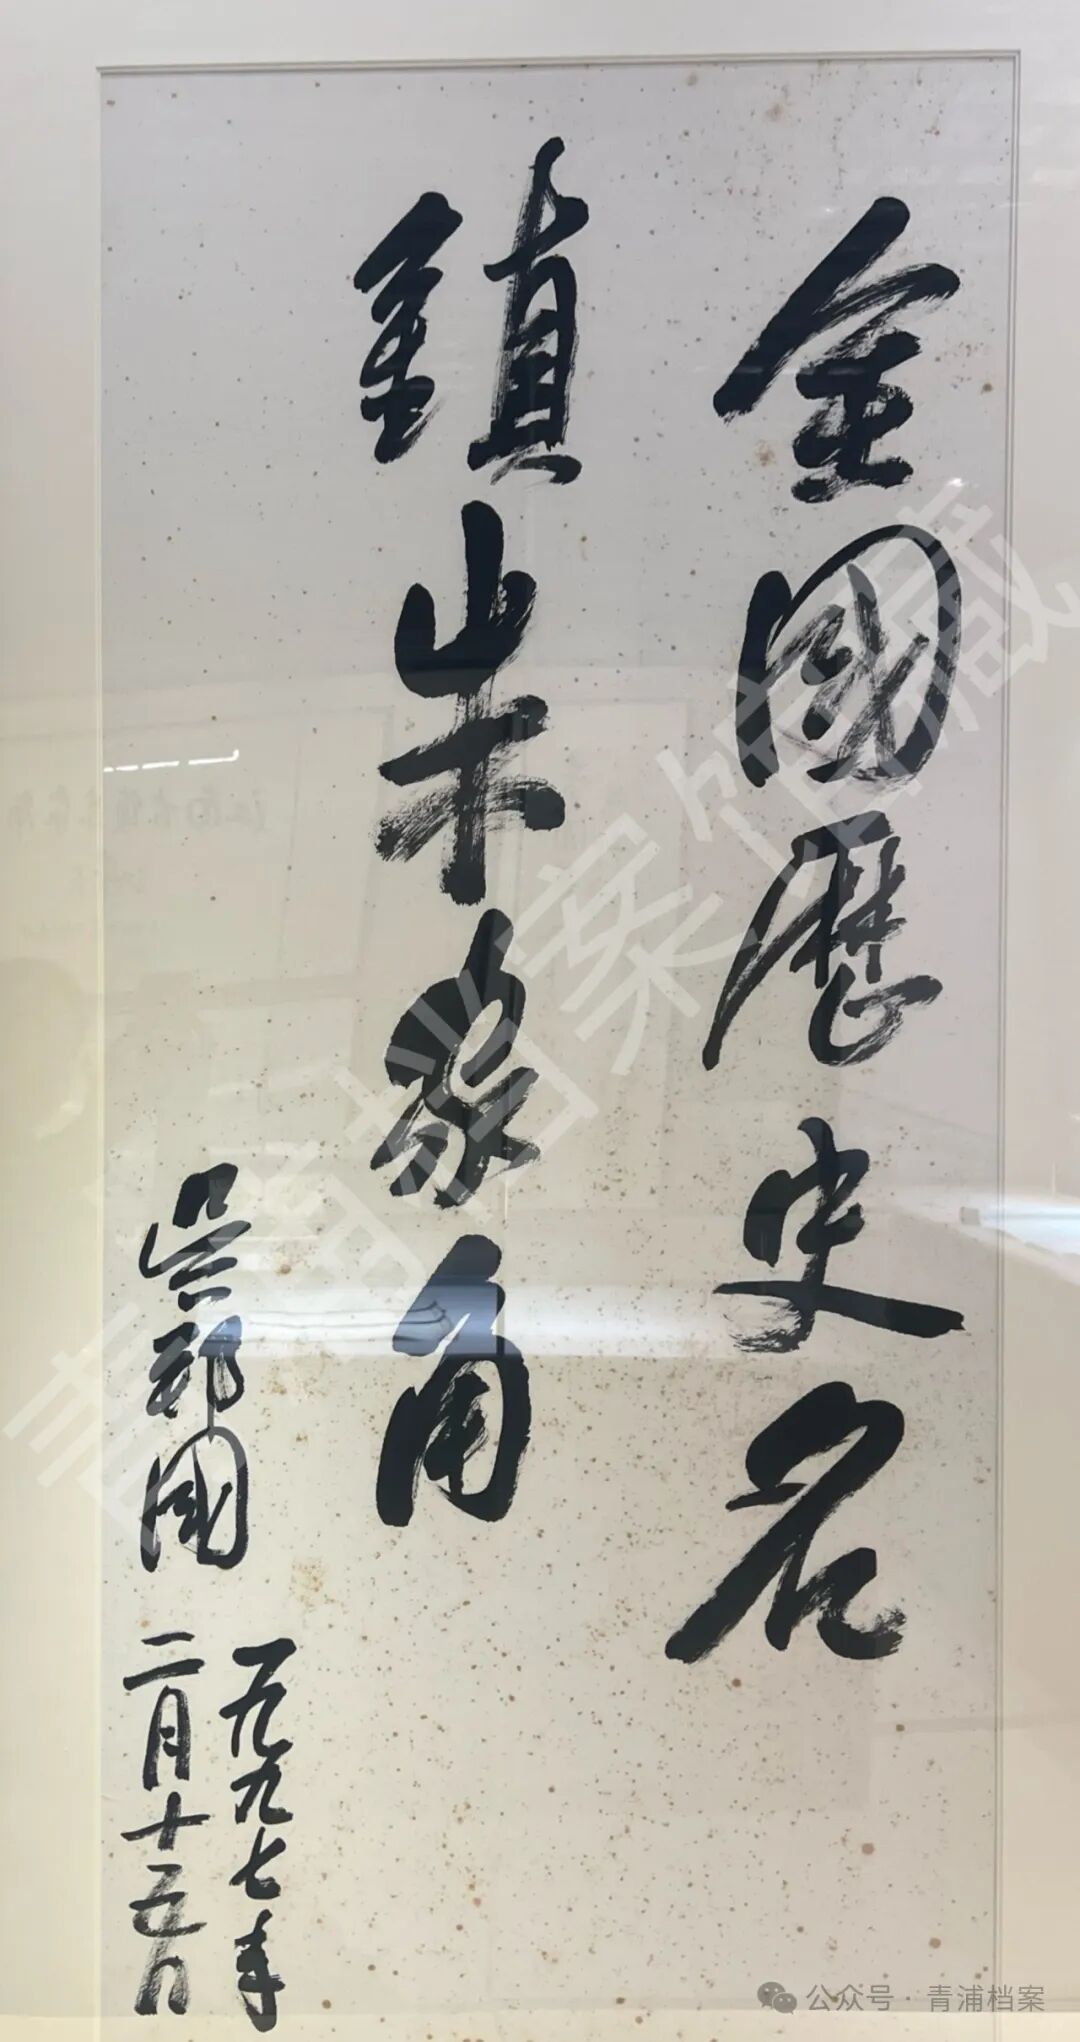 全國歷史名
鎮朱家角
吴邦國
一九九七年
二月十五日
青浦档案馆藏
公众号·青浦档案